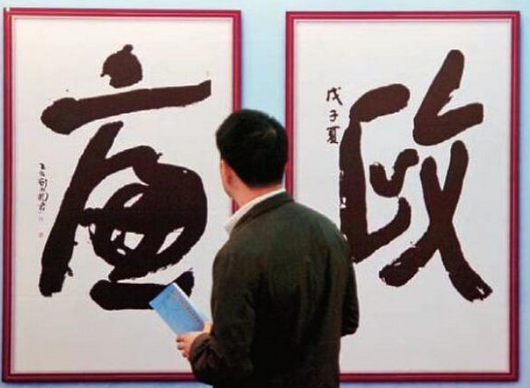 廉
政
戊子夏